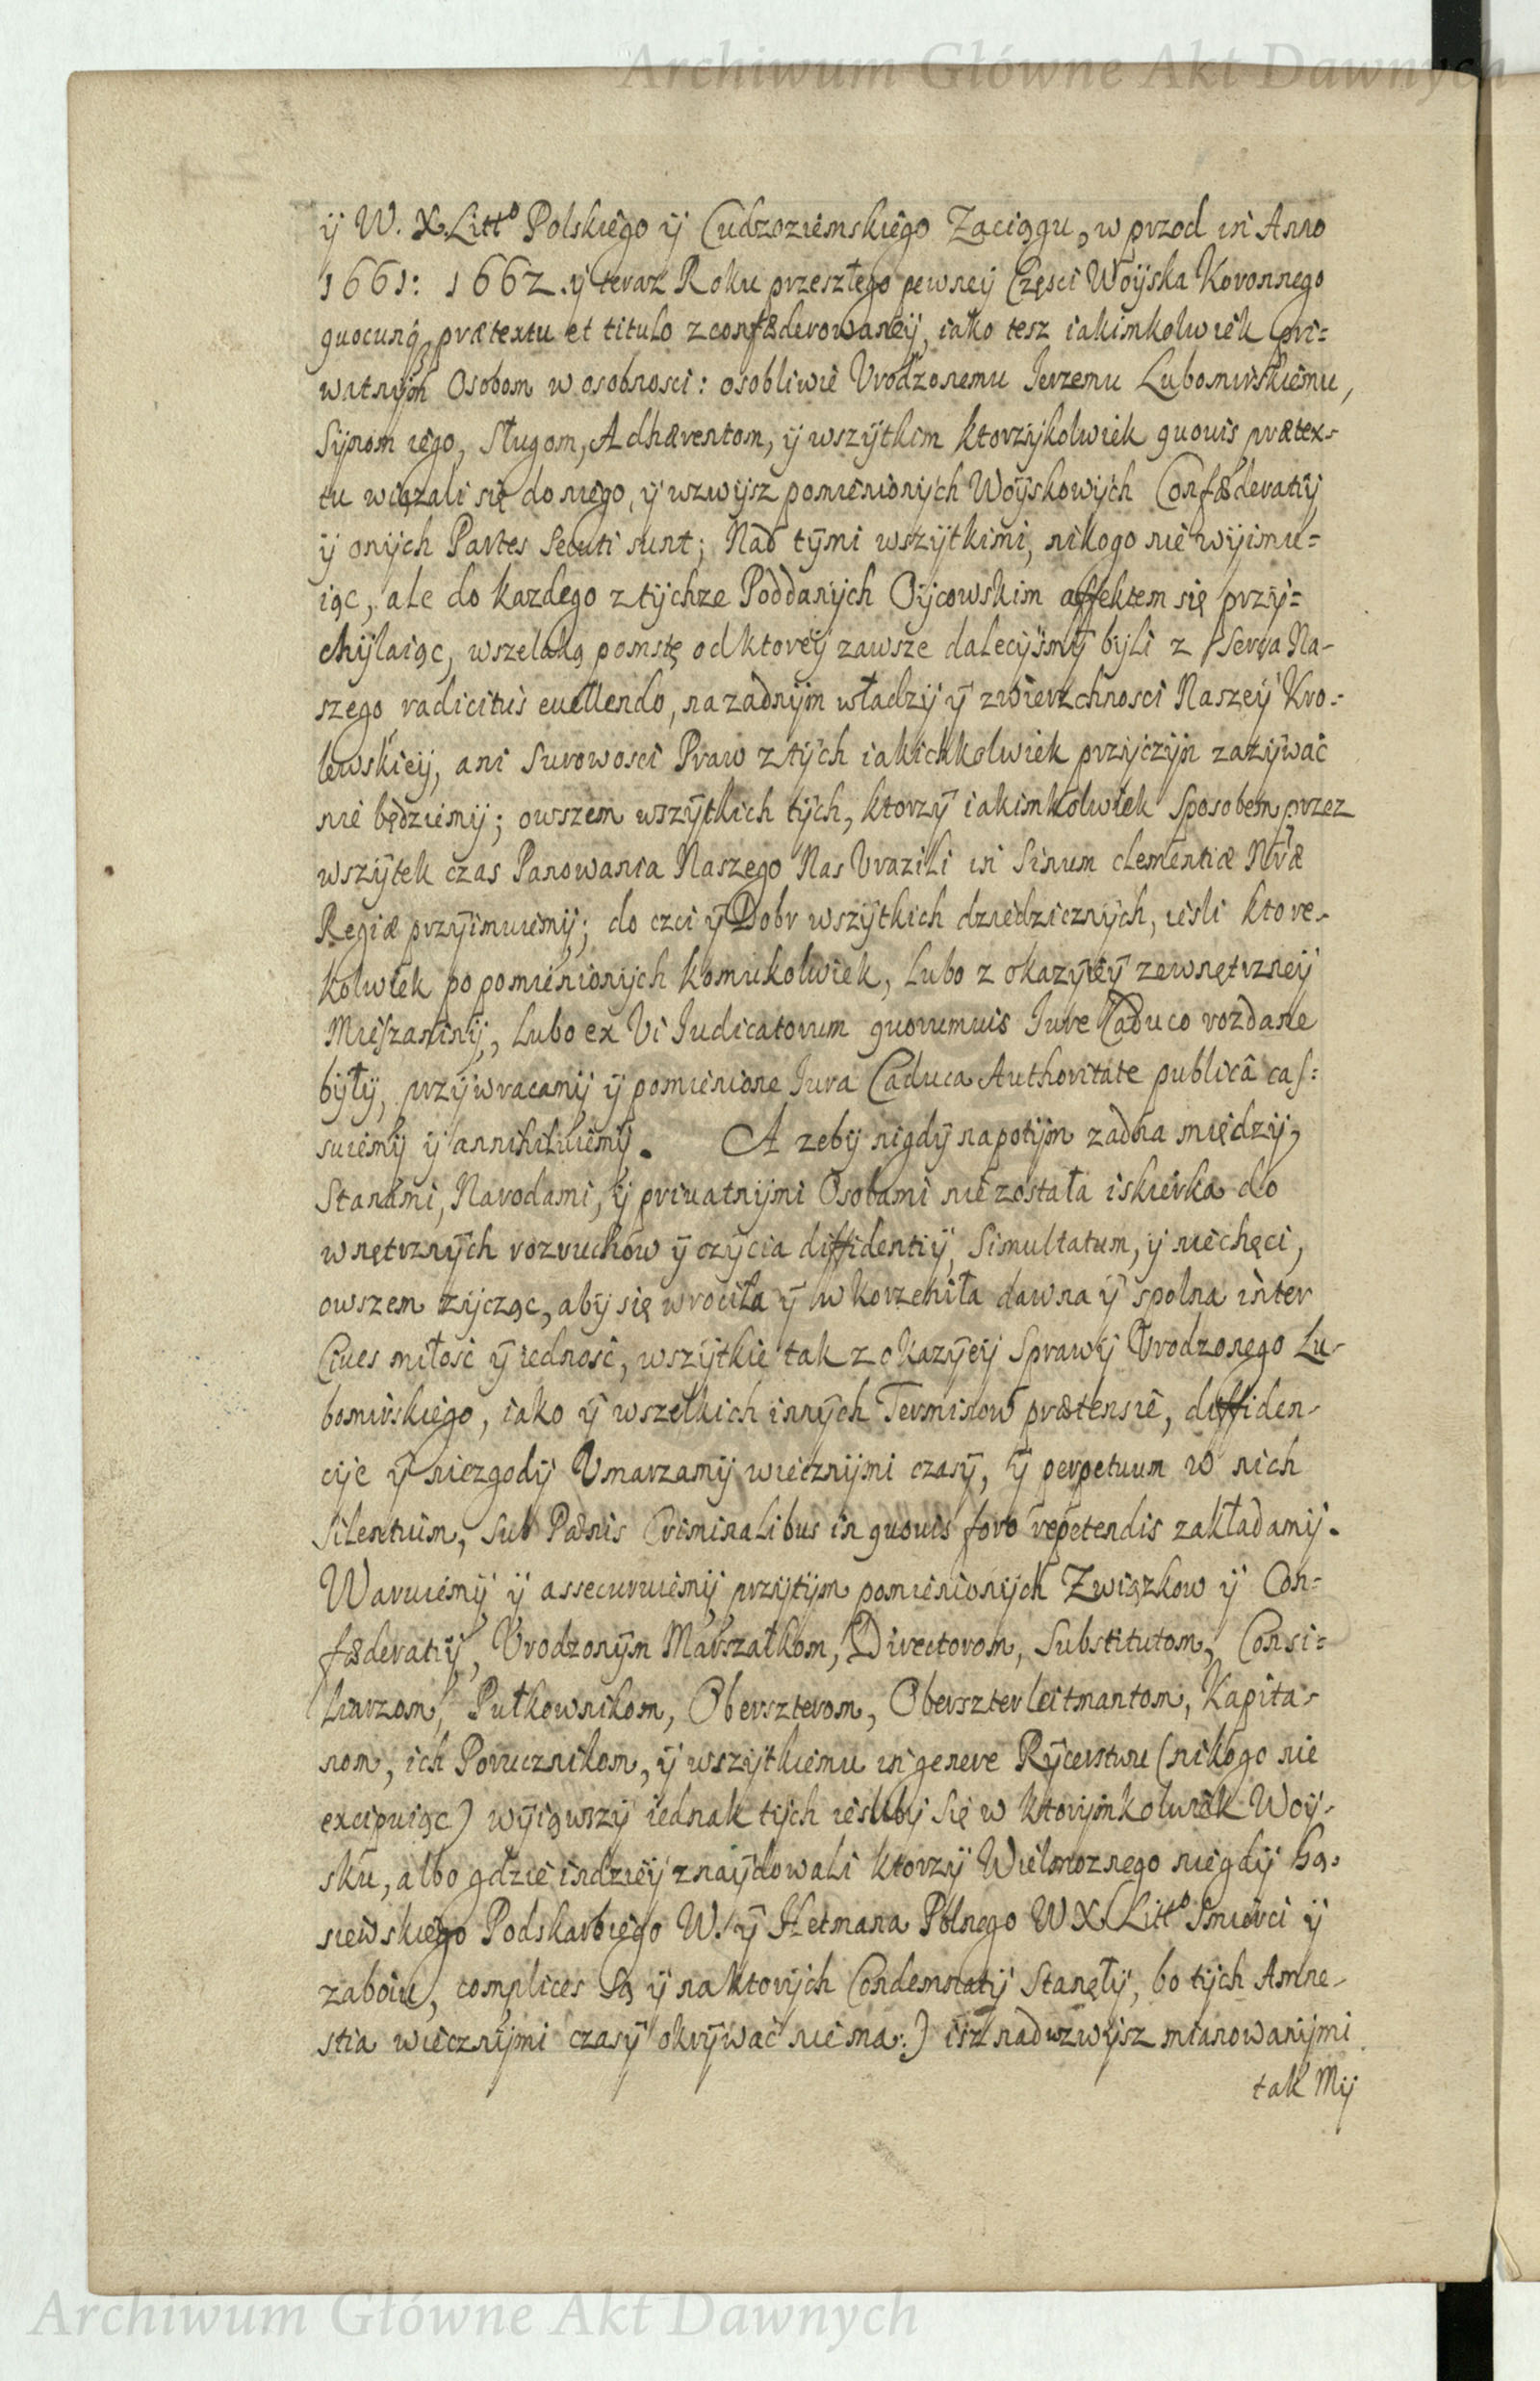 Archiwum Główne Akt Dawnych
ÿ W. X. Litt° Polskiego ÿ Cudzoziemskiego Zaciągu, w przod in Anno
1661: 1662. ÿ teraz Roku przeszłego pewneÿ Części Woÿska Koronnego
quocunq prætextu et titulo zconfæderowaneÿ, iako tesz iakimkolwiek pri=
watnÿm Osobom w osobnosci: osobliwie Vrodzonemu Jerzemu Lubomirskiemu,
Sÿnom iego, Sługom, Adhærentom, ÿ wszÿtkim ktorzÿkolwiek quouis prætex-
tu wiązali się do niego, ÿ wzwÿsz pomienionÿch Woÿskowÿch Confæderatiÿ
ÿ onÿch Partes Secuti sunt; Nad tÿmi wszÿtkimi, nikogo nie wÿimu=
iąc, ale do kazdego z tÿchze Poddanÿch Oÿcowskim affektem się przÿ=
chÿlaiąc, wszelaką pomstę od ktoreÿ zawsze dalecÿsmÿ bÿli z Serca Na-
szego radicitus euellendo, na zadnÿm władzÿ ÿ zwierzchnosci Naszeÿ Kro-
lewskieÿ, ani Surowosci Praw z tÿch iakichkolwiek przÿczÿn zazÿwać
nie będziemÿ; owszem wszÿtkich tÿch, ktorzÿ iakimkolwiek Sposobem przez
wszÿtek czas Panowania Naszego Nas Vrazili in Sinum clementiæ Nræ
Regiæ przÿimuiemÿ; do czci ÿ Dobr wszÿtkich dziedzicznÿch, iesli ktore-
kolwiek po pomienionÿch komukolwiek, Lubo z okazÿieÿ zewnętrzneÿ
Mieszaninÿ, Lubo ex Vi Iudicatorum quorumuis Iure Caduco rozdane
bÿłÿ, przÿwracamÿ ÿ pomienione Iura Caduca Authoritate publicâ cas=
suiemÿ ÿ annihiluiemÿ. A zebÿ nigdÿ napotÿm zadna międzÿ
Stanami, Narodami, ÿ priuatnÿmi Osobami nie została iskierka do
wnętrznÿch rozruchów ÿ czÿcia diffidentiÿ, Simultatum, ÿ niechęci,
owszem zÿcząc, abÿ się wrociła ÿ wkorzeniła dawna ÿ spolna inter
Ciues miłość ÿ iedność, wszÿtkie tak z okazÿeÿ Sprawÿ Vrodzonego Lu-
bomirskiego, iako ÿ wszelkich innÿch Terminow prætensie, diffiden-
cÿe ÿ niezgodÿ Vmarzamÿ wiecznÿmi czasÿ, ÿ perpetuum w nich
Silentium, Sub Pænis Criminalibus in quouis foro repetendis zakładamÿ.
Waruiemÿ ÿ assecuruiemÿ przÿtÿm pomienionÿch Związkow ÿ Con=
fæderatiÿ, Vrodzonÿm Marszałkom, Directorom, Substitutom, Consi=
liarzom, Pułkownikom, Oberszterom, Oberszterleitmantom, Kapita-
nom, ich Porucznikom, ÿ wszÿtkiemu in genere Rÿcerstwu (nikogo nie
excipuiąc) wÿiąwszÿ iednak tÿch ieslibÿ Się w ktorÿmkolwiek Woÿ-
sku, albo gdzie indzieÿ znaÿdowali ktorzÿ Wielmoznego niegdÿ Gą-
siewskiego Podskarbiego W. ÿ Hetmana Polnego W X Litt° Smierci ÿ
zaboiu, complices Są ÿ na ktorÿch Condemnatÿ Stanęłÿ, bo tÿch Amne-
stia wiecznÿmi czasÿ okrÿwać nie ma:) isz nad wzwÿsz mianowanÿmi
tak Mÿ
Archiwum Główne Akt Dawnych